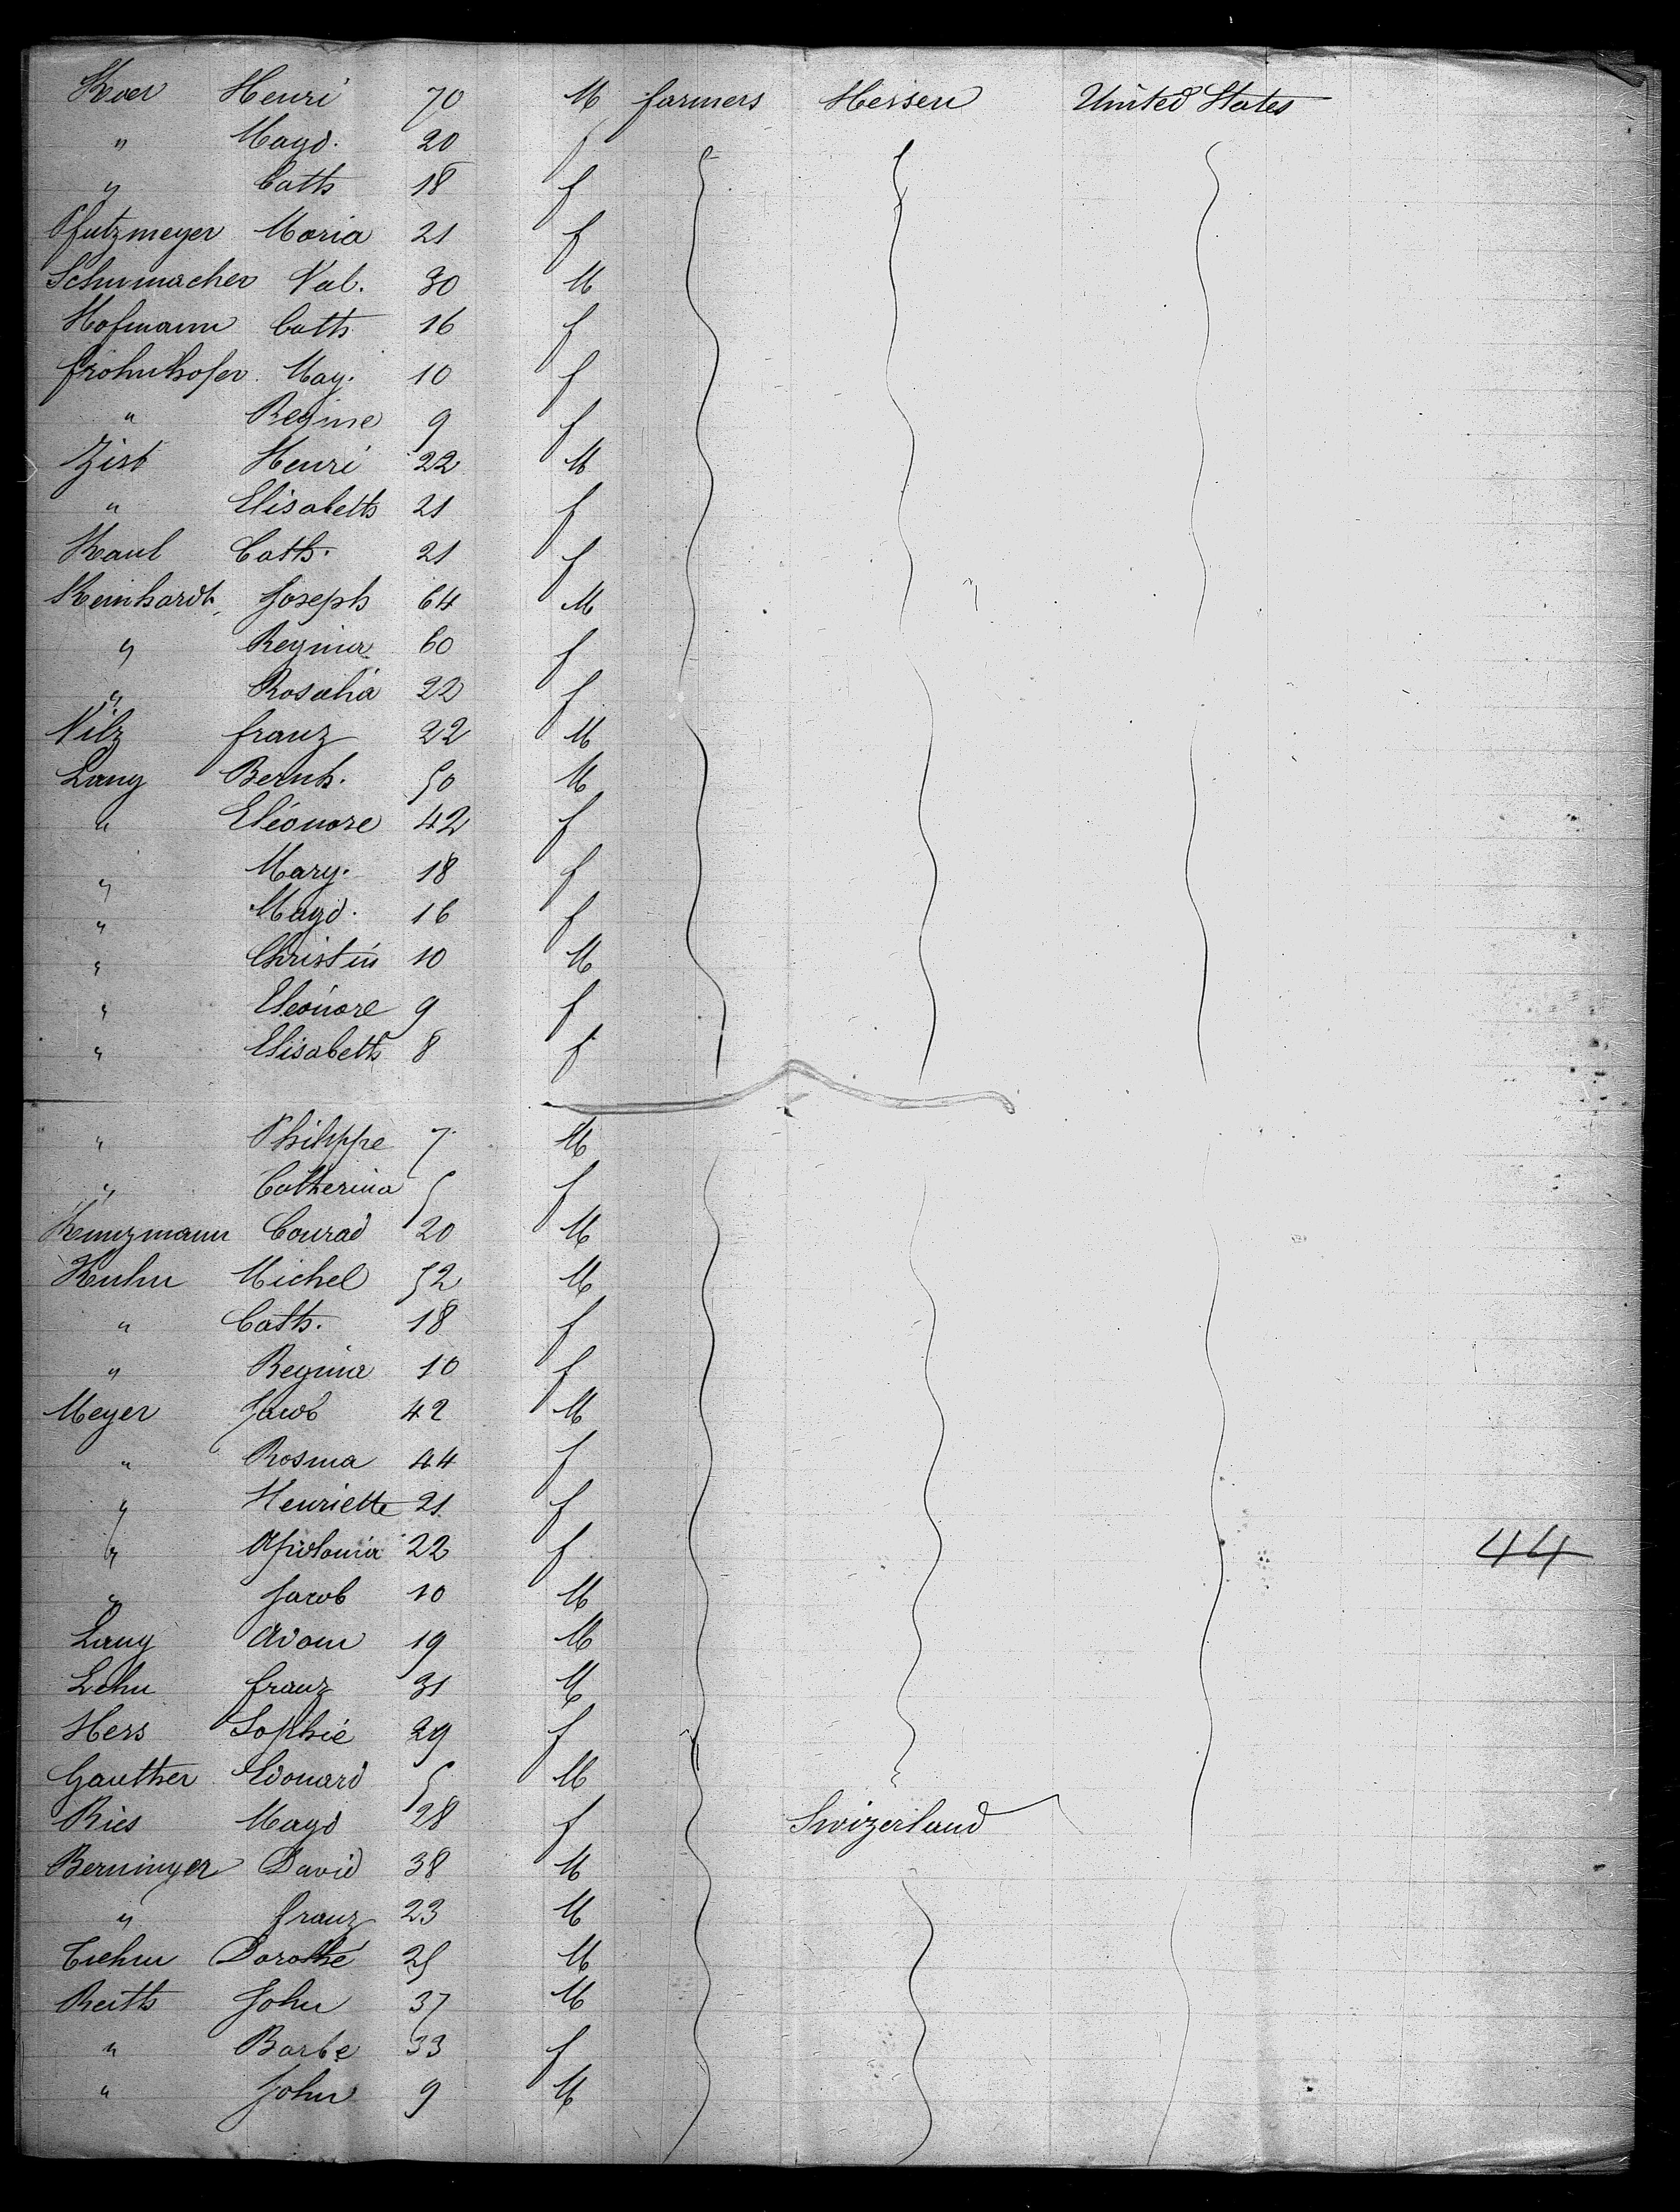 Henri 70 M farmers Hessen United States
" Magd. 20 f
" Cath 18 f
Pfutzmeyer Maria 21 f
Schumacher Val. 30 M
Hofmann Cath 16 f
Frohnhofer Mag. 10 f
" Regine 9 f
Zist Henri 22 M
" Elisabeth 21 f
Kaul Cath. 21 f
Reinhardt Joseph 64 M
" Regina 60 f
" Rosalia 22 f
Nilz Franz 22 M
Lang Bernh. 50 M
" Eléonore 42 f
" Marg. 18 f
" Magd. 16 f
" Christin 10 M
" Eleonore 9 f
" Elisabeth 8 f
" Philippe 7 M
" Catherina 5 f
Kunzmann Conrad 20 M
Kuhn Michel 52 M
" Cath. 18 f
" Regina 10 f
Meyer Jacob 42 M
" Rosina 44 f
" Henriette 21 f
" Apolonia 22 f 44
" Jacob 10 M
Lang Adam 19 M
Lehn Franz 31 M
Hess Sophie 29 f
Gauther Edouard 5 M
Ries Magd 28 f Swizerland
Berninger David 38 M
" Franz 23 M
Dorothé 25 M
Reith John 37 M
" Barbe 33 f
" John 9 M